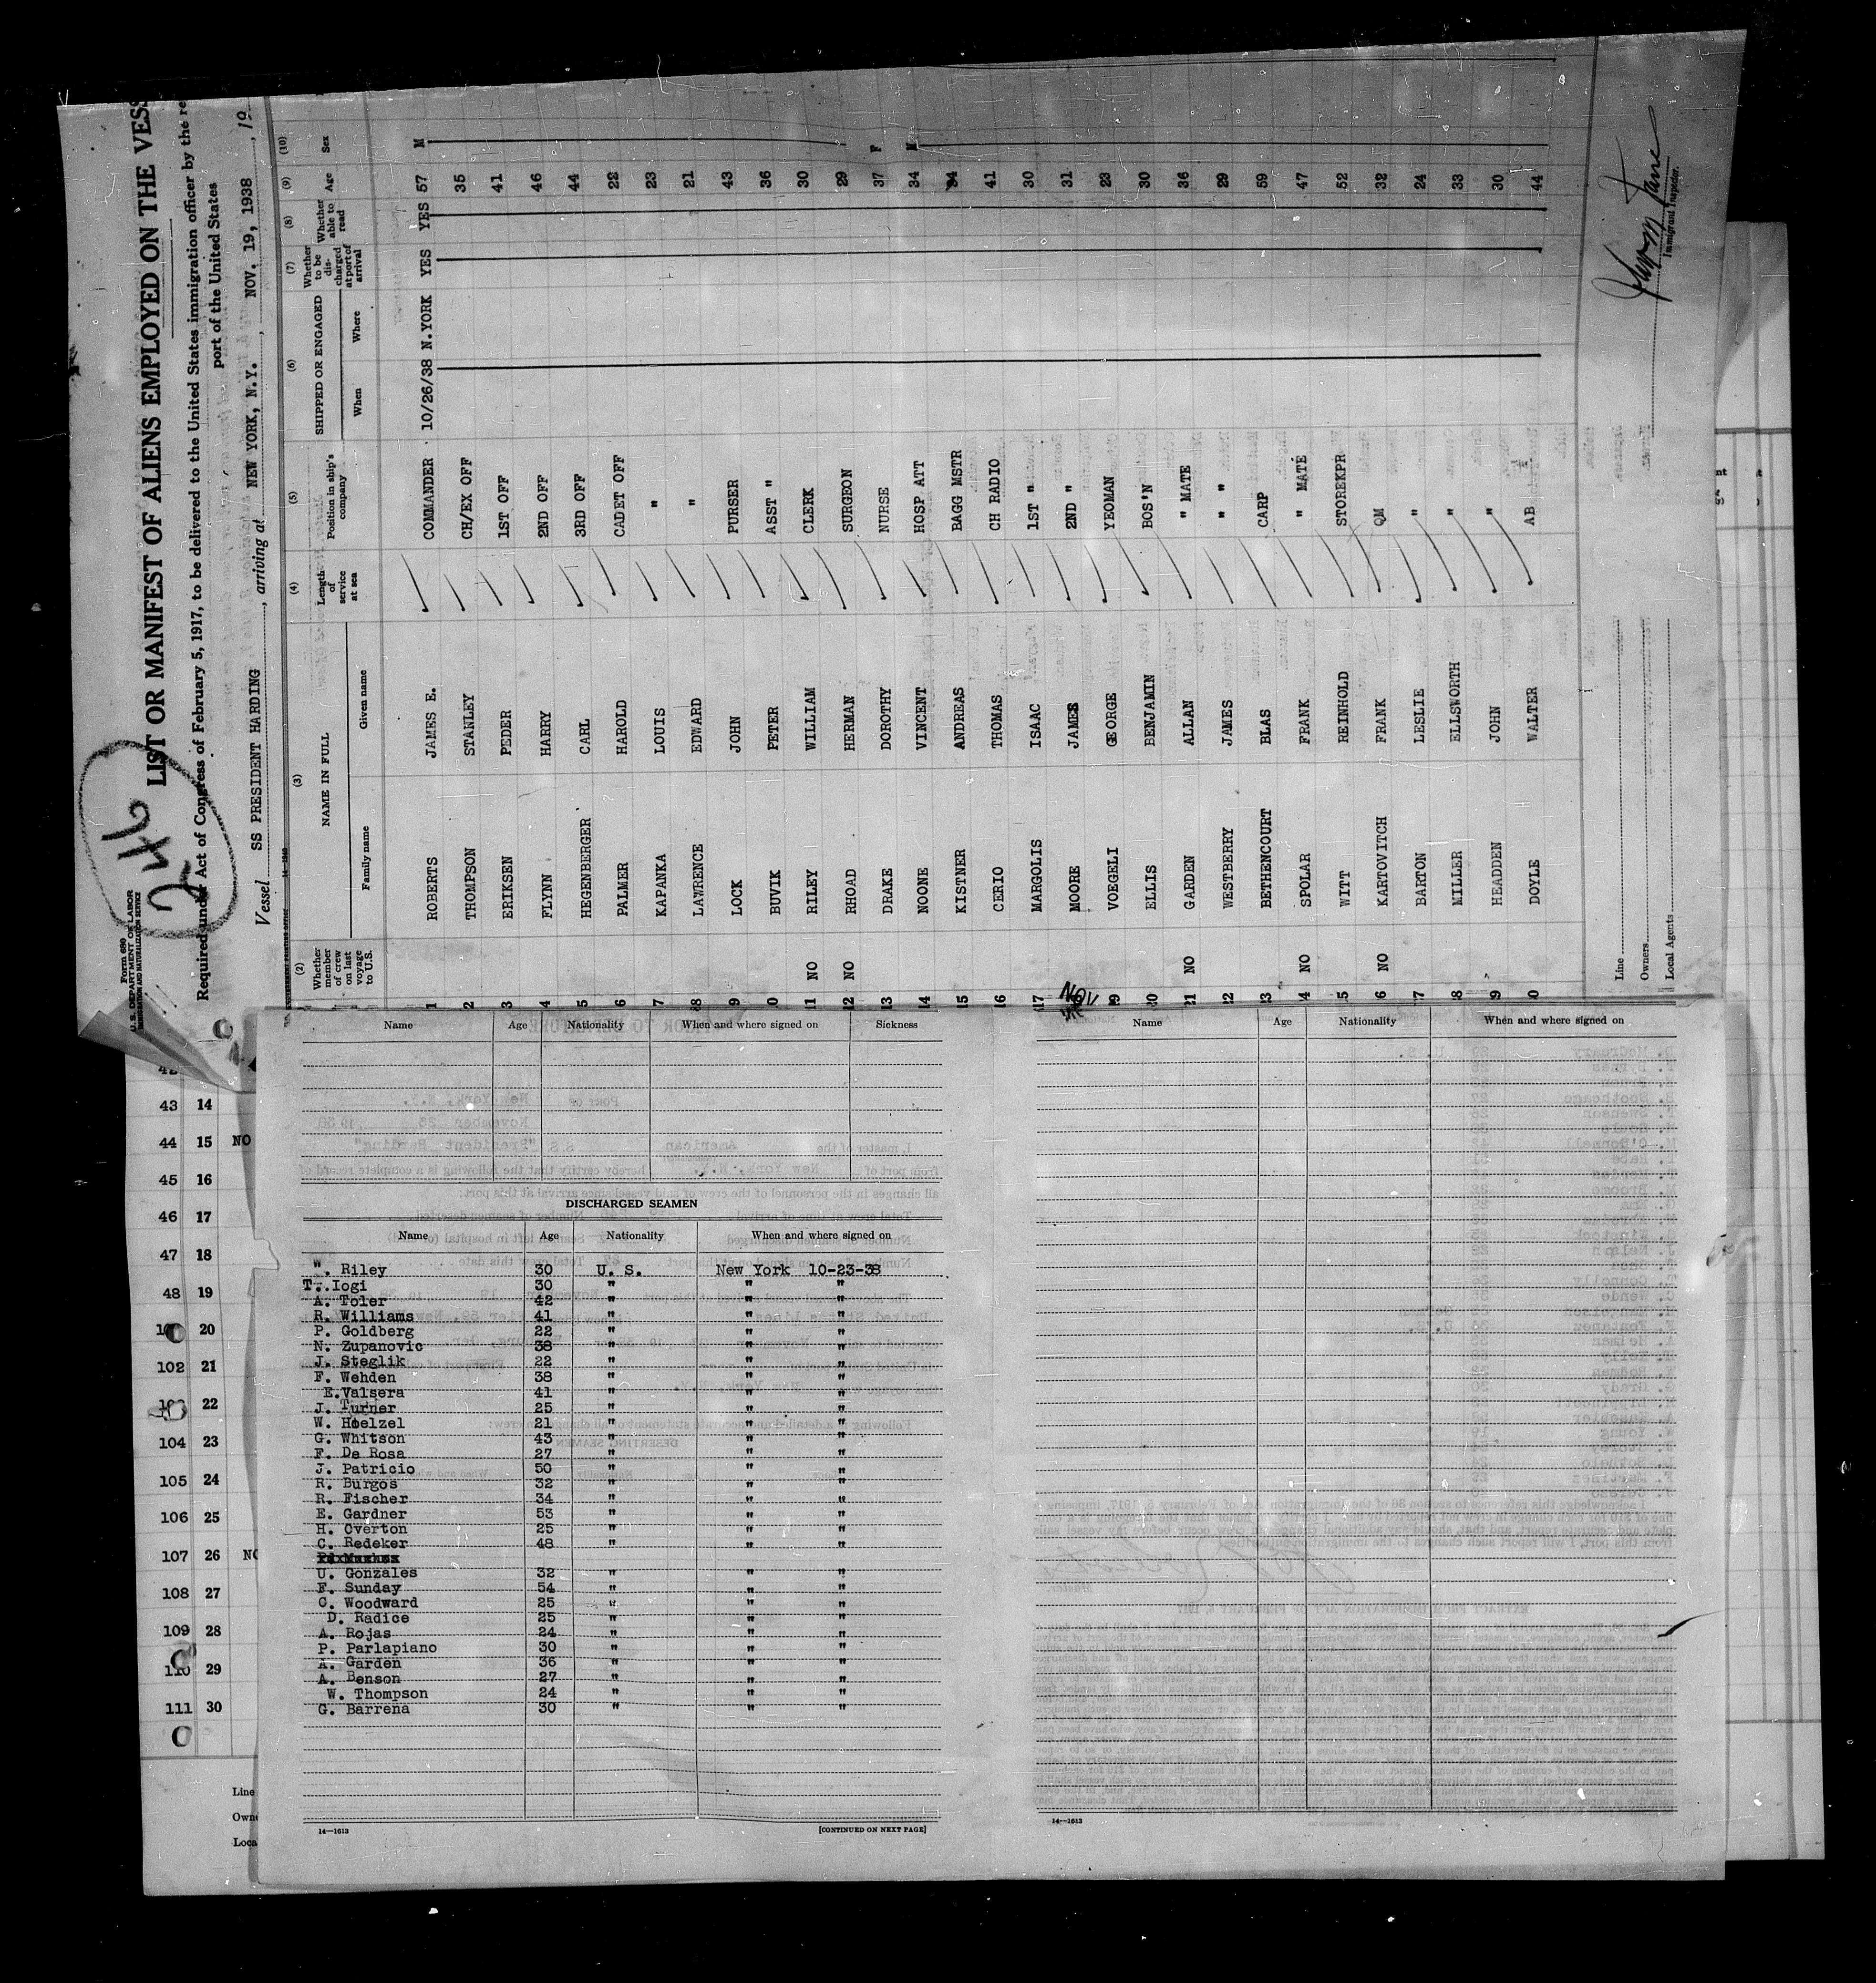 Form 680
U. S. DEPARTMENT OF LABOR
IMMIGRATION AND NATURALIZATION SERVICE
246
LIST OR MANIFEST OF ALIENS EMPLOYED ON THE VESS
Required under Act of Congress of February 5, 1917, to be delivered to the United States immigration officer by the re
port of the United States
Vessel SS PRESIDENT HARDING, arriving at NEW YORK, N.Y., NOV. 19, 1938, 19
(2) (3) (4) (5) (6) (7) (8) (9) (10)
Whether member of crew on last voyage to U.S. NAME IN FULL Family name Given name Length of service at sea Position in ship's company SHIPPED OR ENGAGED When Where Whether to be discharged at port of arrival Whether able to read Age Sex
1 ROBERTS JAMES E. COMMANDER 10/26/38 N.YORK YES YES 57 M
2 THOMPSON STANLEY CH/EX OFF 35
3 ERIKSEN PEDER 1ST OFF 41
4 FLYNN HARRY 2ND OFF 46
5 HEGENBERGER CARL 3RD OFF 44
6 PALMER HAROLD CADET OFF 22
7 KAPANKA LOUIS " 23
8 LAWRENCE EDWARD " 21
9 LOCK JOHN PURSER 43
0 BUVIK PETER ASST " 36
11 NO RILEY WILLIAM CLERK 30
12 NO RHOAD HERMAN SURGEON 29
13 DRAKE DOROTHY NURSE 37 F
14 NOONE VINCENT HOSP ATT 34 M
15 KISTNER ANDREAS BAGG MSTR 34
16 CERIO THOMAS CH RADIO 41
17 MARGOLIS ISAAC 1ST " 30
MOORE JAMES 2ND " 31
19 VOEGELI GEORGE YEOMAN 23
20 ELLIS BENJAMIN BOS'N 30
21 NO GARDEN ALLAN " MATE 36
22 WESTBERRY JAMES " " 29
23 BETHENCOURT BLAS CARP 59
4 NO SPOLAR FRANK " MATE 47
5 WITT REINHOLD STOREKPR 52
6 NO KARTOVITCH FRANK QM 32
7 BARTON LESLIE " 24
8 MILLER ELLSWORTH " 33
9 HEADDEN JOHN " 30
0 DOYLE WALTER AB 44
Line
Owners
Local Agents
Immigrant Inspector.
NOV
Name Age Nationality When and where signed on Sickness
DISCHARGED SEAMEN
Name Age Nationality When and where signed on
W. Riley 30 U. S. New York 10-23-38
T. Iogi 30 " " "
A. Toler 42 " " "
R. Williams 41 " " "
P. Goldberg 22 " " "
N. Zupanovic 38 " " "
J. Steglik 22 " " "
F. Wehden 38 " " "
E. Valsera 41 " " "
J. Turner 25 " " "
W. Hoelzel 21 " " "
G. Whitson 43 " " "
F. De Rosa 27 " " "
J. Patricio 50 " " "
R. Burgos 32 " " "
R. Fischer 34 " " "
E. Gardner 53 " " "
H. Overton 25 " " "
C. Redeker 48 " " "
U. Gonzales 32 " " "
F. Sunday 54 " " "
C. Woodward 25 " " "
D. Radice 25 " " "
A. Rojas 24 " " "
P. Parlapiano 30 " " "
A. Garden 36 " " "
A. Benson 27 " " "
W. Thompson 24 " " "
G. Barrena 30 " " "
14—1613
[CONTINUED ON NEXT PAGE]
Name Age Nationality When and where signed on
14—1613
43 14
44 15 NO
45 16
46 17
47 18
48 19
20
102 21
22
104 23
105 24
106 25
107 26 NO
108 27
109 28
110 29
111 30
Line
Own
Loca